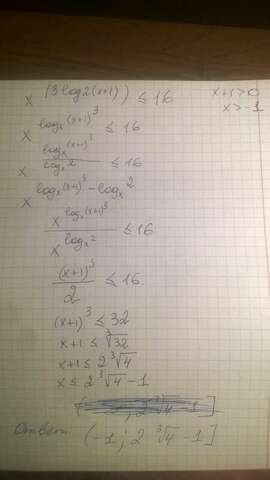 x^(3log2(x+1)) ≤ 16 x+1>0
x>-1
x^(log₂(x+1)³) ≤ 16
x^(logₓ(x+1)³/logₓ2) ≤ 16
x^(logₓ(x+1)³-logₓ2)
x^(logₓ(x+1)³)/x^(logₓ2) ≤ 16
(x+1)³/2 ≤ 16
(x+1)³ ≤ 32
x+1 ≤ ³√32
x+1 ≤ 2³√4
x ≤ 2³√4 -1
Ответ: (-1; 2³√4 -1]